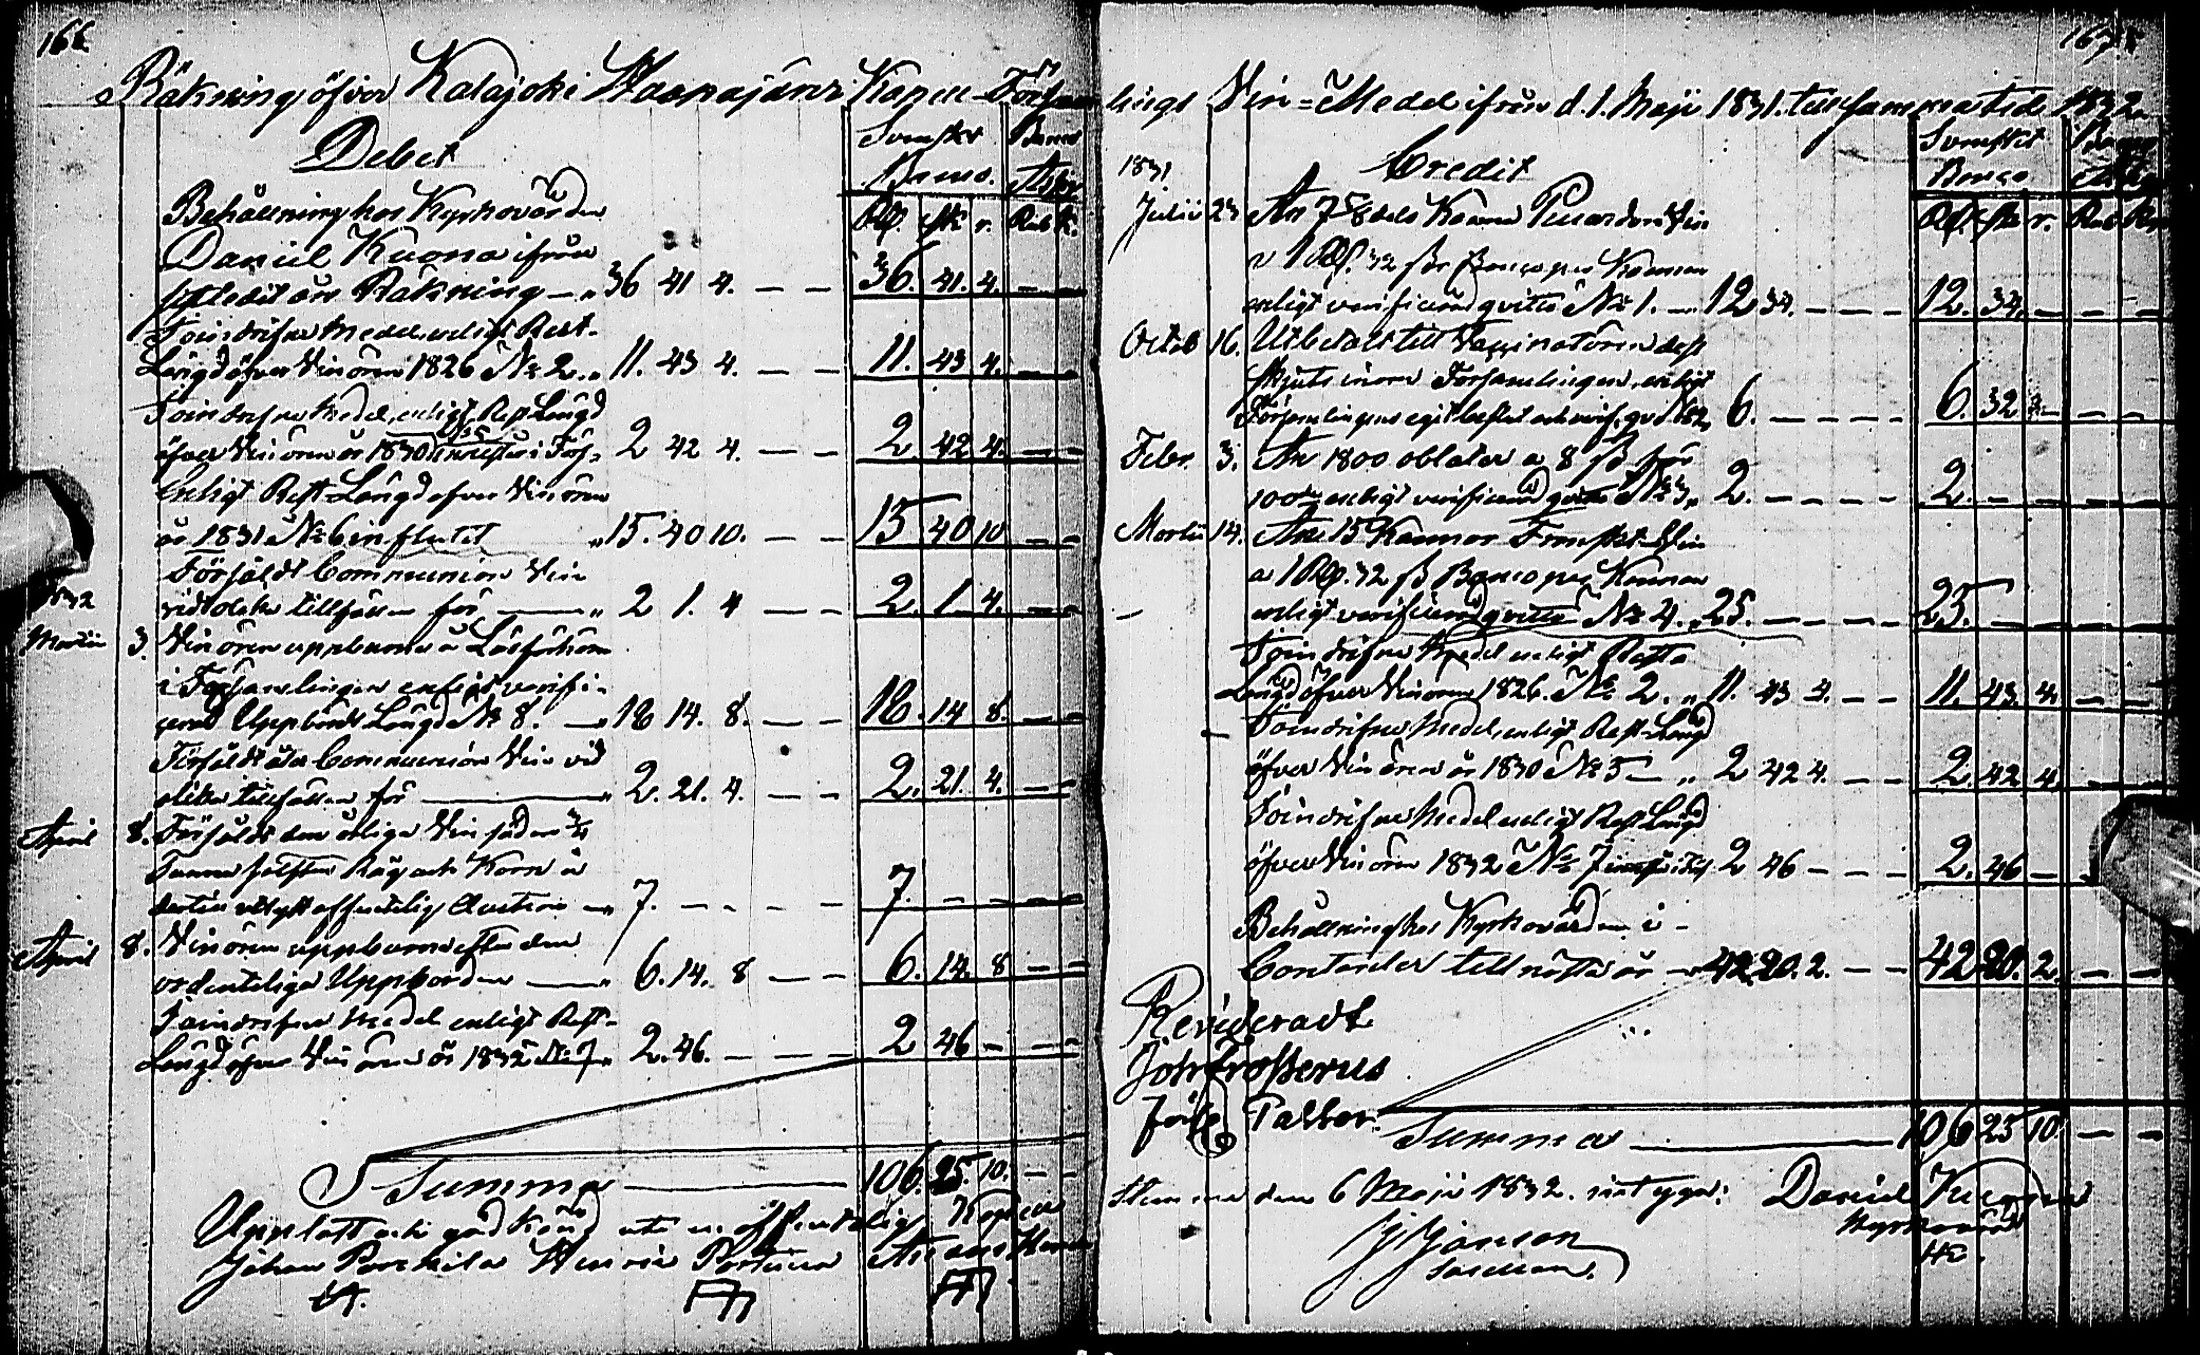 166
Räkning öfver Kalajoki Haapajärvi Kapell-Försam
Debet
Svenska Banco. Banco Ass.
Rdl. sk. r. Rub. K.
Behållning hos Kyrkovärden
Daniel Kuona ifrån
sistledit års Räkning — „ 36 41 4. — — 36. 41. 4. — —
Foindrifne Medel enligt Rest-
Längd öfver Vinören 1826 No 2. „ 11. 43 4. — — 11. 43 4. — —
Foindrifne Medel, enligt Rest Längd
öfver Vinören år 1830 2 42 4. — — 2. 42 4. — —
Enligt Rest-Längd öfver Vinören
år 1831 No 6 influtet „ 15. 40 10. — — 15 40 10 — —
Försåldt Communion Vin
vid olika tillfällen för — „ 2 1. 4 — — 2. 1. 4. — —
1832
Martii 3. Vinören uppburne å Läsförhören
i Församlingen enligt verifi-
cerad Uppbörds Längd No 8. — 18 14. 8. — — 18. 14 8. — —
Försåldt åter Communion Vin vid
olika tillfällen för — „ 2. 21. 4. — — 2. 21. 4. — —
April 8. Försåldt den årliga Vin säden 3/4
Tunna hälften Råg och Korn å
dertill utlyst offentelig Auction — 7. — — — — 7. — — — —
April 8. Vinören uppburne efter den
ordenteliga Uppborden — „ 6. 14. 8 — — 6. 14. 8 — —
Foindrifne Medel enligt Rest-
Längd öfver Vinören år 1832 No 7 „ 2. 46. — — — 2 46 — — —
Summa — 106. 25. 10. — —
Uppläst och god känd uti en offentelig
Johan Henric
167
lings Vin-Medel ifrån d. 1. Maji 1831. till samma tid 1832.
Credit
Svenskt Banco Banco
Rdl. sk. r. Rub. Kop
1831
Julii 23 An 7 5/8 dels Kanna Vin
a 1 Rdl. 32 ss Banco per Kannan
enligt verificerad qvitto No 1. — 12 34. — — — 12. 34. — — —
Octob 16. Utbetalt till Vaccinatören dess
skjuts inom Församlingen, enligt
Församlingens eget beslut och verif. qv. No 2 „ 6. — — — — 6. 32 — — —
Febr. 3. An 1800 oblater a 8 ss för
100de enligt verificerad qvitto No 3 „ 2. — — — — 2. — — — —
Martii 14. An 15 Kannor Franskt Vin
a 1 Rdl. 32 ss Banco per Kannan
enligt verificerad qvitto No 4. „ 25. — — — — 25. — — — —
Foindrifne Medel enligt Rest
Längd öfver Vinören 1826. No 2. „ 11. 43 4. — — 11. 43. 4. — —
Foindrifne Medel, enligt Rest-Längd
öfver Vinören år 1830 No 5 — „ 2 42 4. — — 2. 42 4. — —
Foindrifne Medel enligt Rest Längd
öfver Vinören 1832 No 7 2 46 — — — 2. 46 — — —
Behållning hos Kyrkovärden i
Contanter till nästa år — 42 20. 2. — — 42 20. 2. — —
Revideradt
Joh Frosterus
Pastor
Summa — 106 25 10. — —
Stemma den 6 Maji 1832. intyga: Daniel Kuona
Kyrkovärd
J Jonson